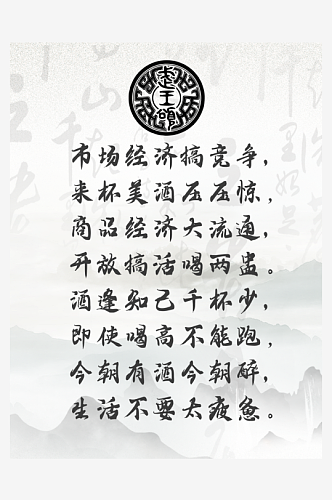 市场经济搞竞争,
来杯美酒压压惊,
商品经济大流通,
开放搞活喝两盅。
酒逢知己千杯少,
即使喝高不能跑,
今朝有酒今朝醉,
生活不要太疲惫。